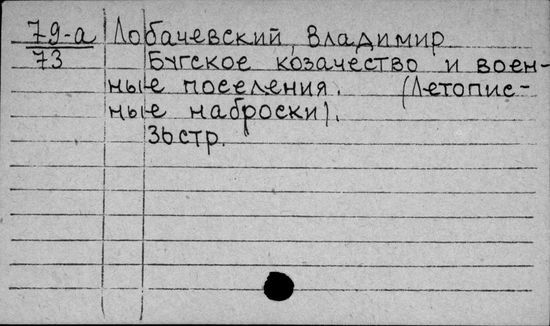 79-а Лобачевский, Владимир
73 Бугское козачество и воен-
ные поселения. (Летопис-
ные наброски).
36 стр.